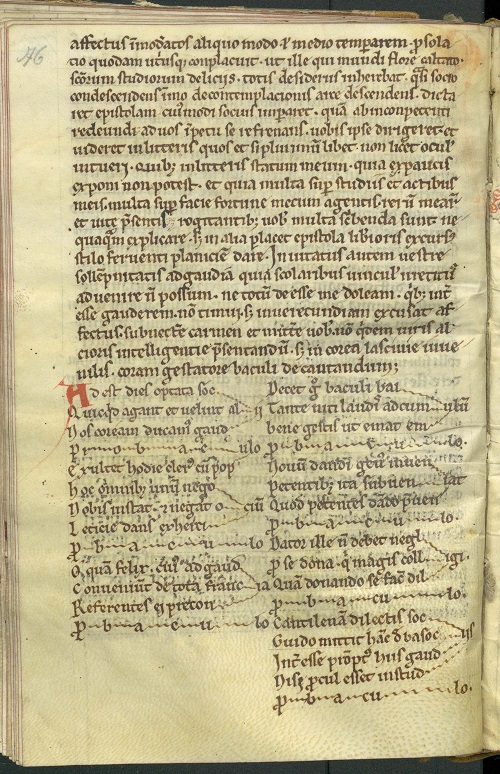 46
affectus i͞modatos aliquo modo ł medio temperarem. p͞sola
tio quodam utrisq; complacuit. ut ille qui mundi flore calcato.
sc͞orum studiorum deliciis. totis desideriis inherebat. q͞si socio
condescendens i͞mo de contemplacionis arce descendens. dicta
ret epistolam
redeundi ad vos i͞petu se refrenans. vobis ipse dirigeret. et
videret in litteris quos et si plurimu͞ libet non licet ocul'
intueri. Quib; in litteris statum meum. quia ex paucis
exponi non potest. et quia multa sup͞ studiis et actibus
meis. multa sup͞ facie fortune mecum agentis. reru͞ mearu͞
et vite p͞sentis rogitantib; vob' multa sc͞benda sunt ne
quaq͞m explicare. s; in alia placet epistola libioris excursu
stilo ferventi planicie͞ dare. Invitatus autem vestre
solle͞pnitatis ad gaudia. quia scolaribus vincul'
advenire n͞ possum. ne totu͞ deesse me doleam. q͞b; int͞
esse gauderem. no͞ timui. s; inverecundiam excusat af
fectus. subnect͞e carmen et mitt͞e vob'. no͞ q͞dem viris al
cioris intelligentie p͞sentandu͞. s; in corea lascivie iuve
nilis. coram gestatore baculi decantandum;
Adest dies optata soc
Quicq͞d agant et velint al ii
Nos coream ducam' gaud
p͞ ulo
Exultet hodie cu͞ pop
Hoc o͞mnib; nego
Nobis instat. & negat o ciu͞
Leticie dans
p͞ lo
O qua͞ felix. ad gaud
Conveniu͞t de tota franc ia
Referentes ei preton
p͞ lo
Decet g͞ baculi bai
Tante viri laudu͞ adcum ulu͞
bene gestis ut emat em
p͞ lo.
Novu͞ dandi gen' inven
Petentib; ita subven iat
Quod petentes dando p͞ven
p͞ lo.
Dator ille n͞ debet negl
p͞ se dona. q͞ magis coll igi.
Qua͞ donando se fac͞ dil
p͞ lo.
Cantilena͞ dilectis soc
Guido mittit ha͞c d͞ basoc iis
Int͞esse p͞o͞pt' hiis gaud
Nisi p͞cul esset
p͞ lo.